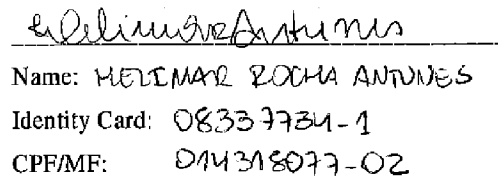 Helimar Antunes
Name: HELIMAR ROCHA ANTUNES
Identity Card: 08337734-1
CPF/MF: 014318077-02